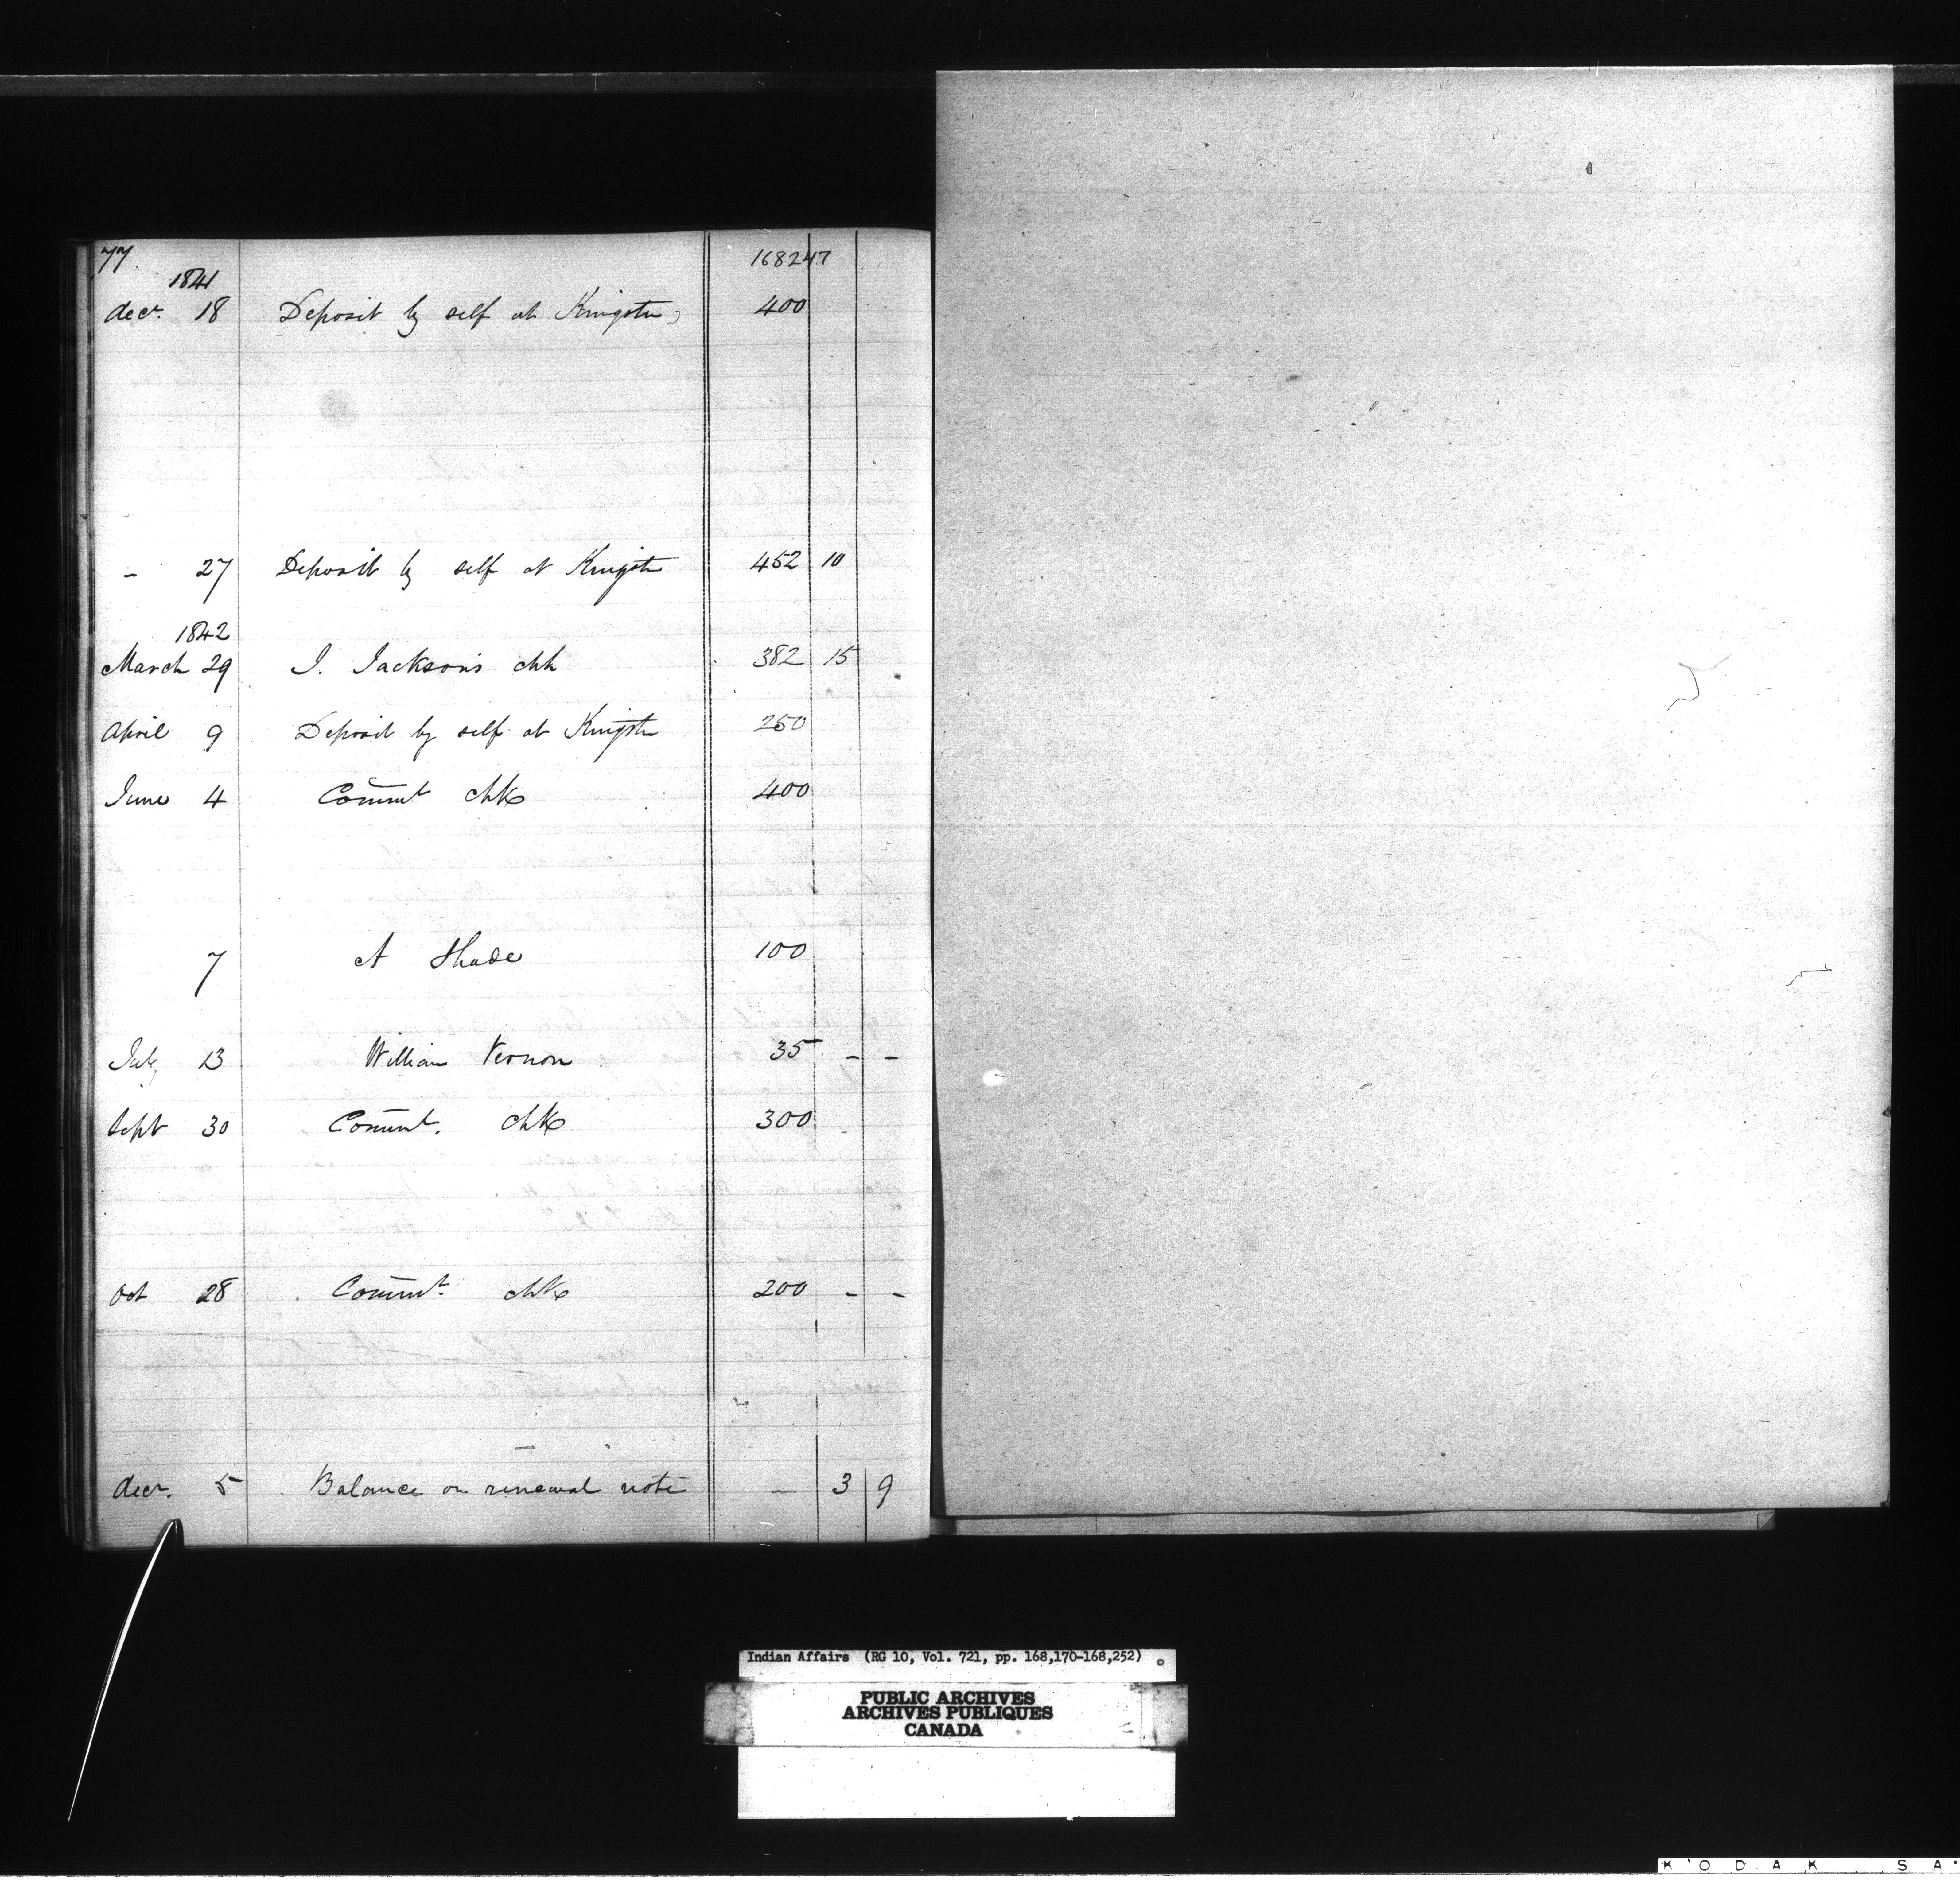 77
168247
1841
decr. 18 Deposit by self at Kingston 400
- 27 Deposit by self at Kingston 452 10
1842
March 29 J. Jackson's chk 382 15
April 9 Deposit by self at Kingston 250
June 4 Commt chk 400
7 A Shade 100
July 13 William Vernon 35 - -
Sept 30 Commt. chk 300 -
Oct 28 Commt. chk 200 - -
decr. 5 Balance on renewal note - 3 9
Indian Affairs (RG 10, Vol. 721, pp. 168,170-168,252)
PUBLIC ARCHIVES
ARCHIVES PUBLIQUES
CANADA
KODAK SA